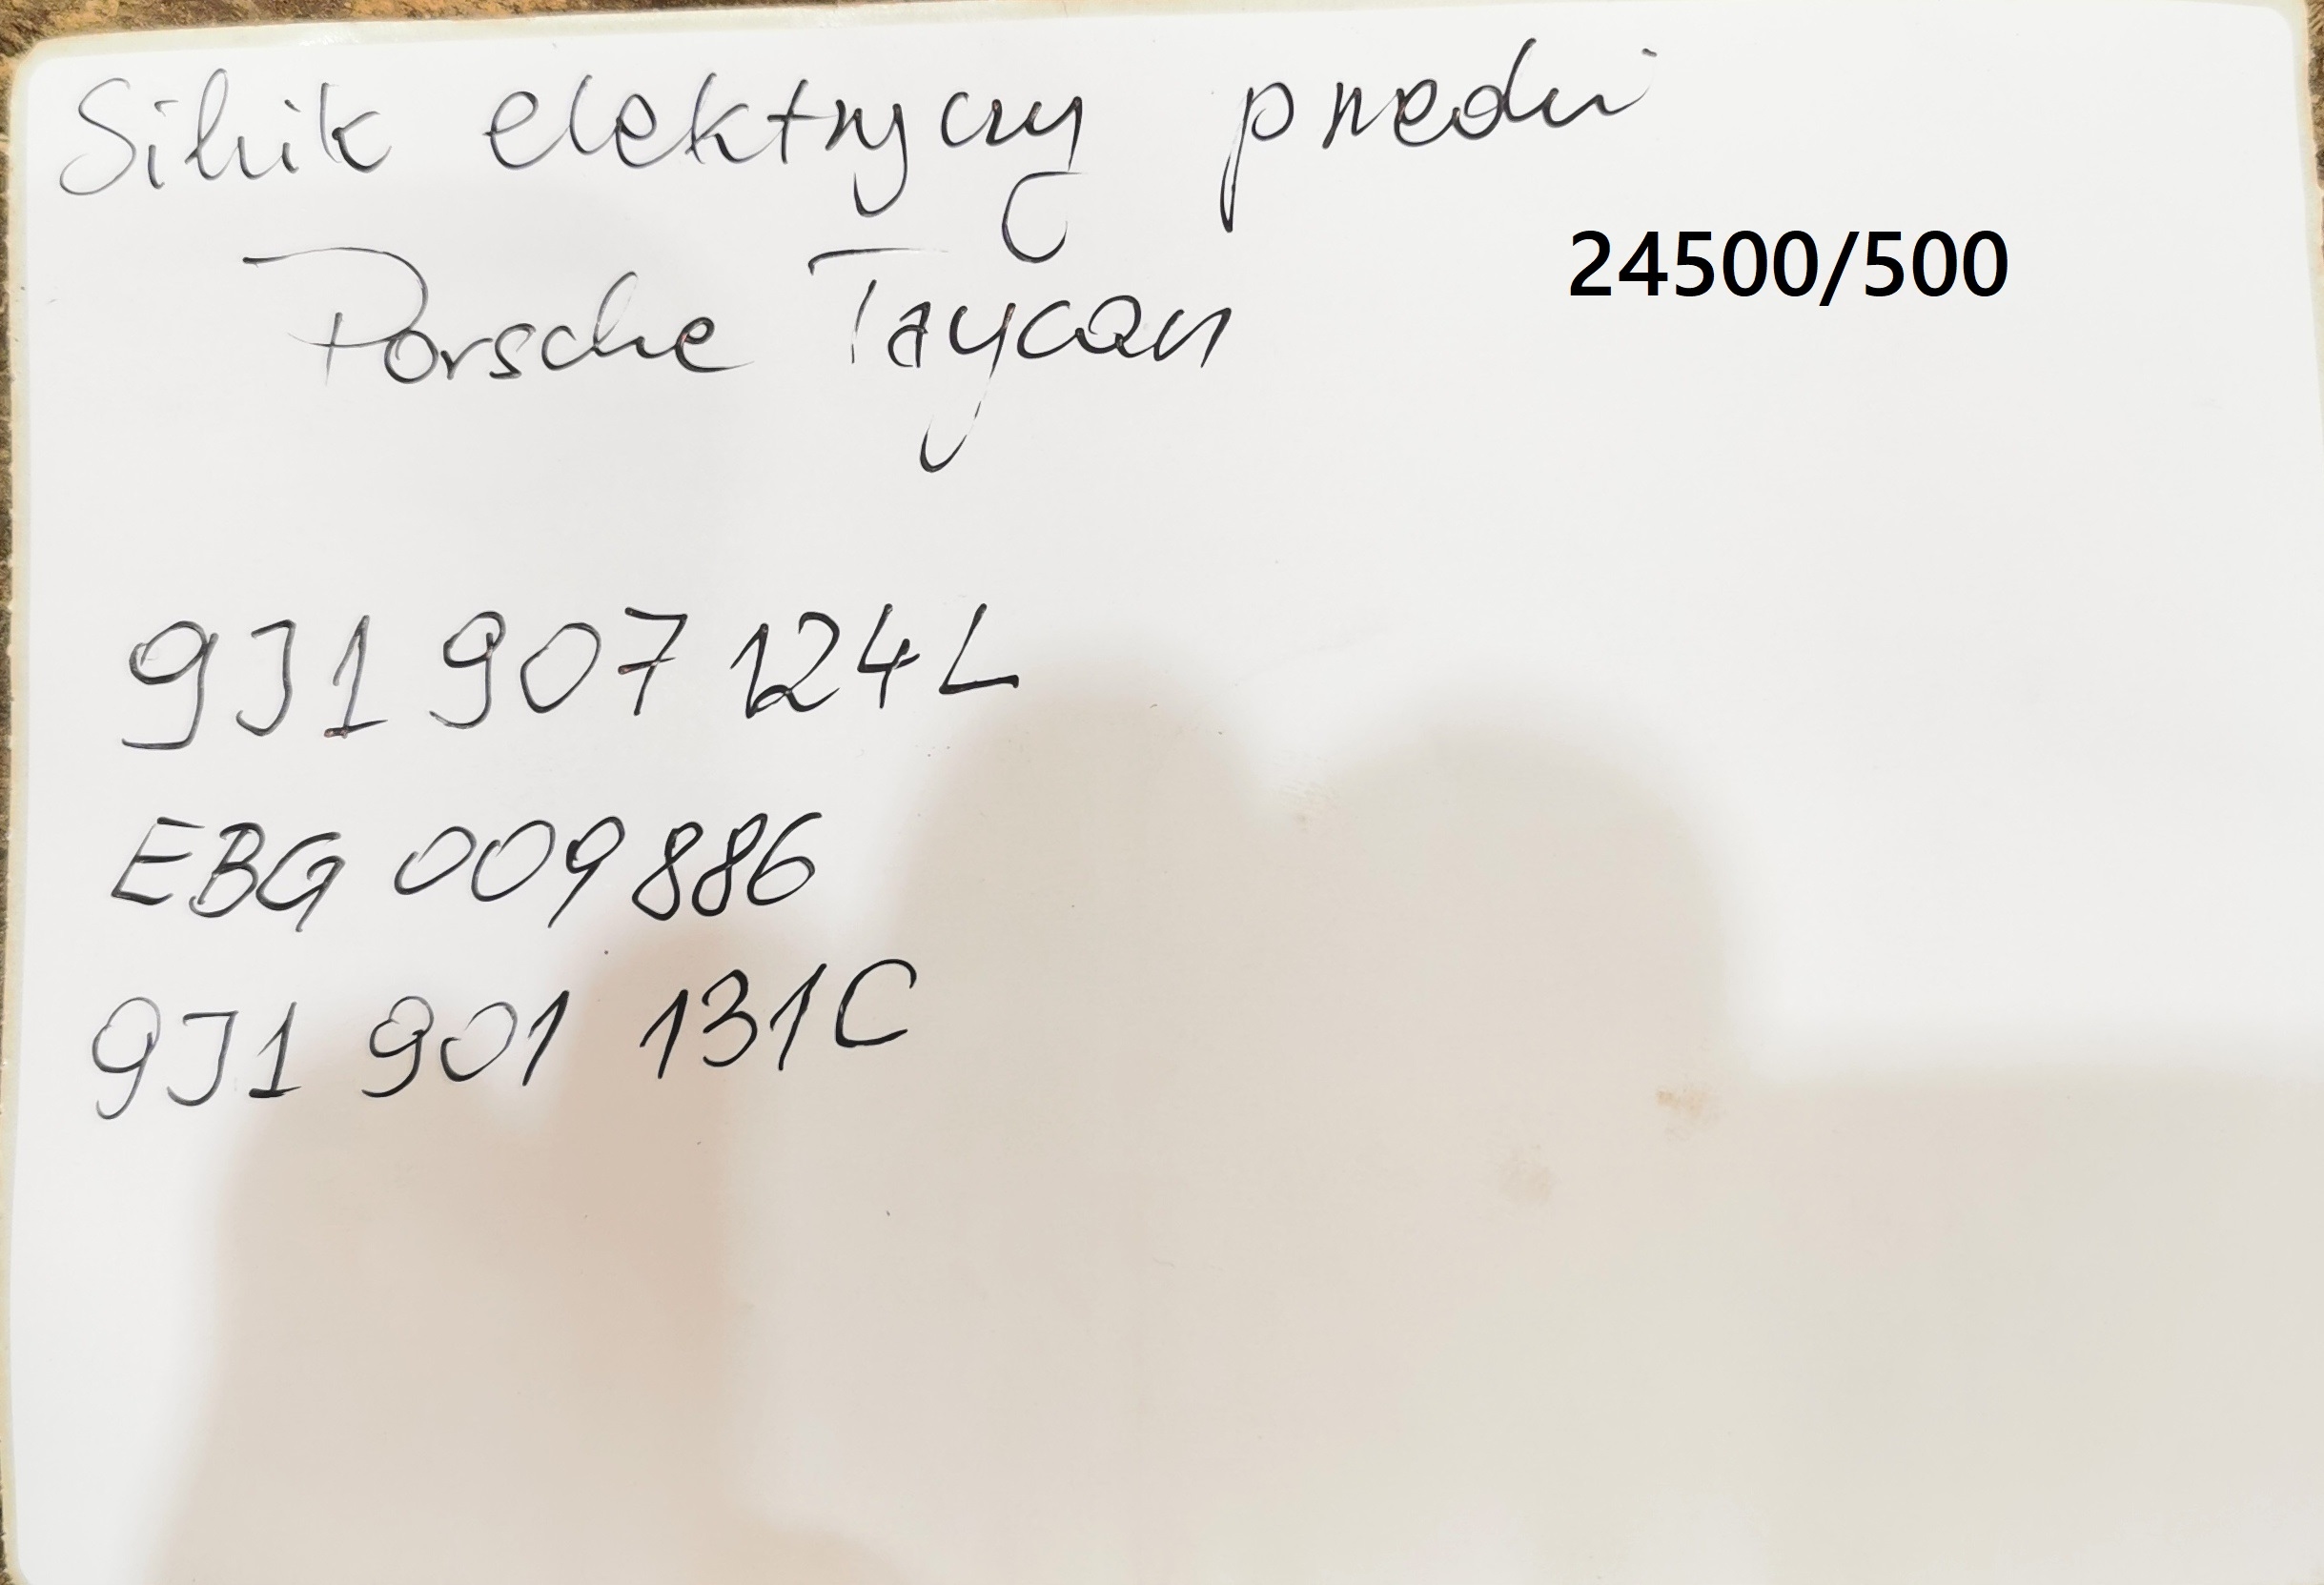 Silnik elektryczny przedni
24500/500
Porsche Taycan
9J1 907 124L
EBG 009886
9J1 901 131C